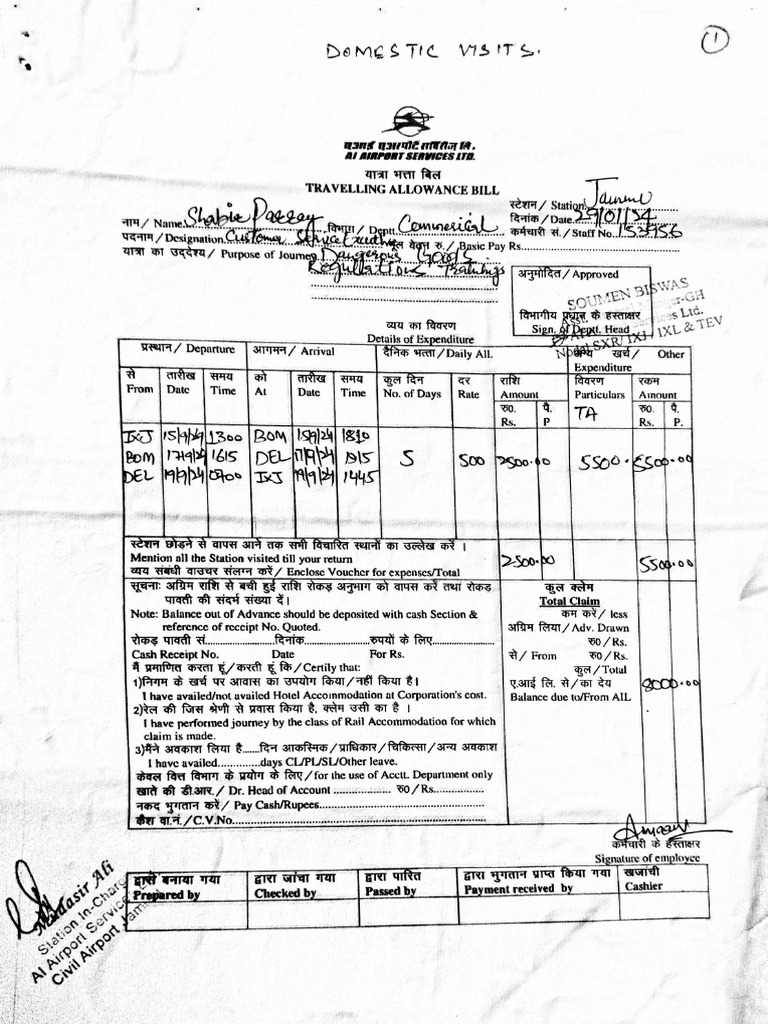 DOMESTIC VISITS.
1
एआई एअरपोर्ट सर्विसेज लि.
AI AIRPORT SERVICES LTD.
यात्रा भत्ता बिल
TRAVELLING ALLOWANCE BILL
स्टेशन / Station Jammu
नाम / Name Shabir Parray विभाग / Deptt. Commercial दिनांक / Date
पदनाम / Designation Customer मूल वेतन रु. / Basic Pay Rs. कर्मचारी सं. / Staff No.
यात्रा का उद्देश्य / Purpose of Journey Dangerous Goods
Regulations Trainings
अनुमोदित / Approved
SOUMEN BISWAS
विभागीय प्रधान के हस्ताक्षर
Sign. of Deptt. Head
Nodal SXR/ IXJ / IXL & TEV
व्यय का विवरण
Details of Expenditure
प्रस्थान / Departure आगमन / Arrival दैनिक भत्ता / Daily All. अन्य खर्च / Other Expenditure
से तारीख समय को तारीख समय कुल दिन दर राशि विवरण रकम
From Date Time At Date Time No. of Days Rate Amount Particulars Amount
रु0. पै. TA रु0. पै.
Rs. P Rs. P.
IXJ 15/9/24 1300 BOM 15/9/24 1810
BOM 17/9/24 1615 DEL 17/9/24 1915 5 500 2500.00 5500. 5500.00
DEL 19/9/24 0700 IXJ 19/9/24 1445
स्टेशन छोड़ने से वापस आने तक सभी विचारित स्थानों का उल्लेख करें ।
Mention all the Station visited till your return 2500.00 5500.00
व्यय संबंधी वाउचर संलग्न करें / Enclose Voucher for expenses/Total
सूचनाः अग्रिम राशि से बची हुई राशि रोकड़ अनुभाग को वापस करें तथा रोकड़
पावती की संदर्भ संख्या दें।
Note: Balance out of Advance should be deposited with cash Section &
reference of receipt No. Quoted.
रोकड़ पावती सं.................दिनांक.................रुपयों के लिए..............
Cash Receipt No. Date For Rs.
मैं प्रमाणित करता हूं / करती हूं कि / Certify that:
1)निगम के खर्च पर आवास का उपयोग किया / नहीं किया है।
I have availed/not availed Hotel Accommodation at Corporation's cost.
2)रेल की जिस श्रेणी से प्रवास किया है, क्लेम उसी का है ।
I have performed journey by the class of Rail Accommodation for which
claim is made.
3)मैंने अवकाश लिया है......दिन आकस्मिक / प्राधिकार / चिकित्सा / अन्य अवकाश
I have availed..............days CL/PL/SL/Other leave.
केवल वित्त विभाग के प्रयोग के लिए / for the use of Acctt. Department only
खाते की डी.आर. / Dr. Head of Account .................. रु0 / Rs...............
नकद भुगतान करें / Pay Cash/Rupees...................................
कैश वा.नं. / C.V.No.......................................................
कुल क्लेम
Total Claim
कम करें / less
अग्रिम लिया / Adv. Drawn
रु0 / Rs.
से / From रु0 / Rs.
कुल / Total
ए.आई लि. से / का देय 8000.00
Balance due to/From AIL
कर्मचारी के हस्ताक्षर
Signature of employee
द्वारा बनाया गया द्वारा जांचा गया द्वारा पारित द्वारा भुगतान प्राप्त किया गया खजांची
Prepared by Checked by Passed by Payment received by Cashier
Mudasir Ali
Station In-Charge
AI Airport Services
Civil Airport Jammu